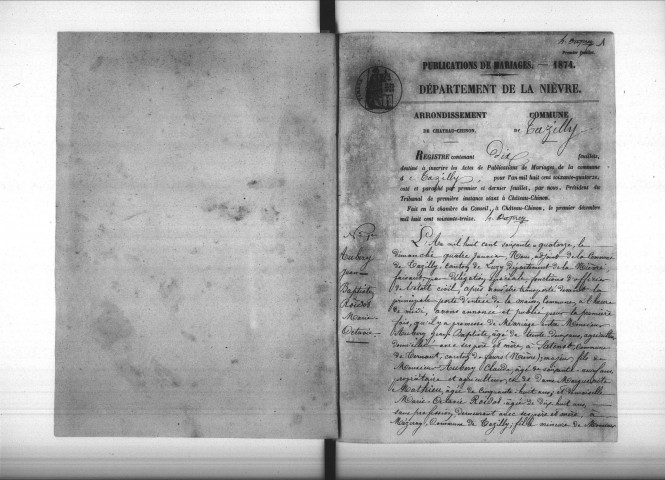 PUBLICATIONS DE MARIAGES. — 1874.
DÉPARTEMENT DE LA NIÈVRE.
ARRONDISSEMENT
DE CHATEAU-CHINON.
COMMUNE
DE Tazilly
REGISTRE contenant Dix feuillets,
destiné à inscrire les Actes de Publications de Mariages de la commune
de Tazilly, pour l'an mil huit cent soixante-quatorze,
coté et paraphé par premier et dernier feuillet, par nous, Président du
Tribunal de première instance séant à Château-Chinon.
Fait en la chambre du Conseil, à Château-Chinon, le premier décembre
mil huit cent soixante-treize.
N° 1er
Aubery
Jean
Baptiste
Roidot
Marie
Octavie
L'An mil huit cent soixante-quatorze, le
dimanche quatre Janvier Nous, adjoint de la Commune
de Tazilly, canton de Luzy Département de la Nièvre
faisant par délégation spéciale fonctions d'officier
de l'état civil, après nous être transporté devant la
principale porte d'entrée de la maison commune, à l'heure
de midi, avons annoncé et publié pour la première
fois, qu'il y a promesse de Mariage entre Monsieur
Aubery Jean Baptiste, âgé de trente deux ans, agriculteur
domicilié avec ses père et mère, à commune
de Ternant, canton de Fours (Nièvre), majeur, fils de
Monsieur Aubery Claude, âgé de soixante neuf ans
propriétaire et agriculteur, et de Dame Marguerite
Mathieu, âgée de Cinquante huit ans, et Demoiselle
Marie Octavie Roidot âgée de dix huit ans,
sans profession, demeurant avec ses père et mère à
commune de Tazilly, fille mineure de Monsieur